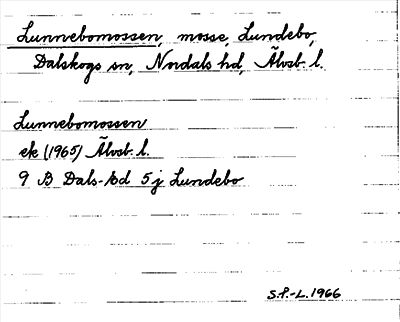 Lunnebomossen, mosse, Lundebo,
Dalskogs sn, Nordals hd, Älvsb. l.
Lunnebomossen
ek (1965) Älvsb. l.
9 B Dals-Ed 5 j Lundebo
S.F.-L. 1966